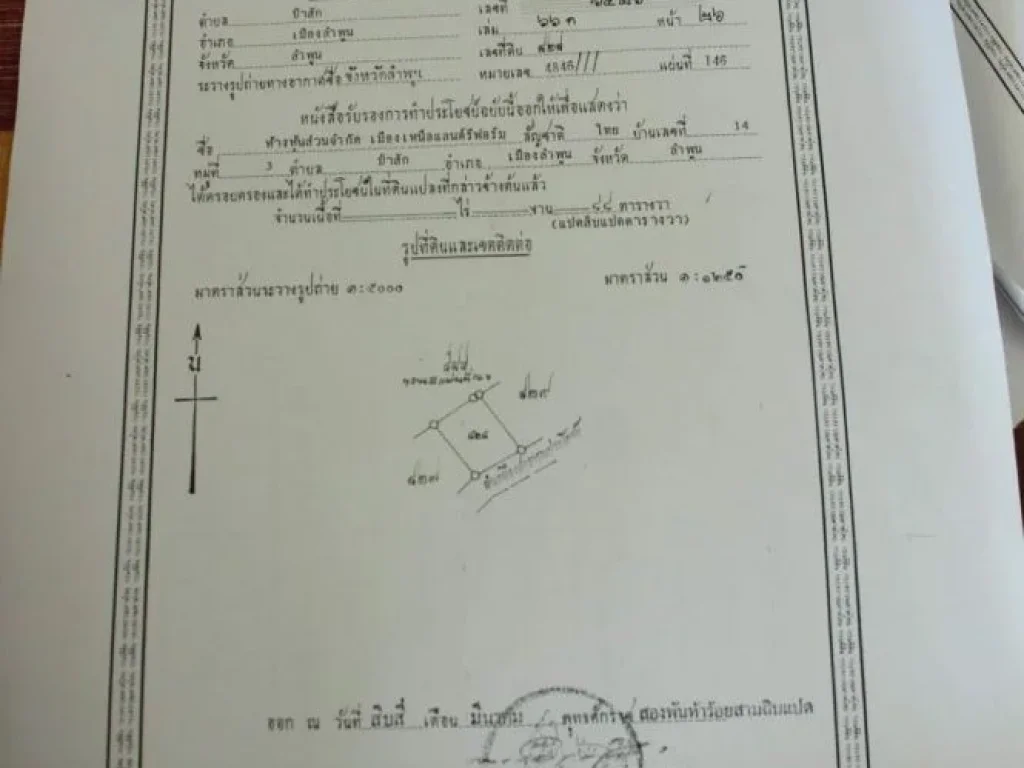 ตำบล ป่าสัก เลขที่
อำเภอ เมืองลำพูน เล่ม ๖๖ ก หน้า ๒๖
จังหวัด ลำพูน เลขที่ดิน ๔๒๘
ระวางรูปถ่ายทางอากาศชื่อ จังหวัดลำพูน หมายเลข 4846/// แผ่นที่ 146
หนังสือรับรองการทำประโยชน์ฉบับนี้ออกให้เพื่อแสดงว่า
ชื่อ ห้างหุ้นส่วนจำกัด เมืองเหนือแลนด์รีฟอร์ม สัญชาติ ไทย บ้านเลขที่ 14
หมู่ที่ 3 ตำบล ป่าสัก อำเภอ เมืองลำพูน จังหวัด ลำพูน
ได้ครอบครองและได้ทำประโยชน์ในที่ดินแปลงที่กล่าวข้างต้นแล้ว
จำนวนเนื้อที่ ไร่ งาน ๘๘ ตารางวา
(แปดสิบแปดตารางวา)
รูปที่ดินและเขตติดต่อ
มาตราส่วนระวางรูปถ่าย ๑:๕๐๐๐ มาตราส่วน ๑:๑๒๕๐
น
๔๒๙
๔๒๘
๔๒๗
ออก ณ วันที่ สิบสี่ เดือน มีนาคม พุทธศักราช สองพันห้าร้อยสามสิบแปด